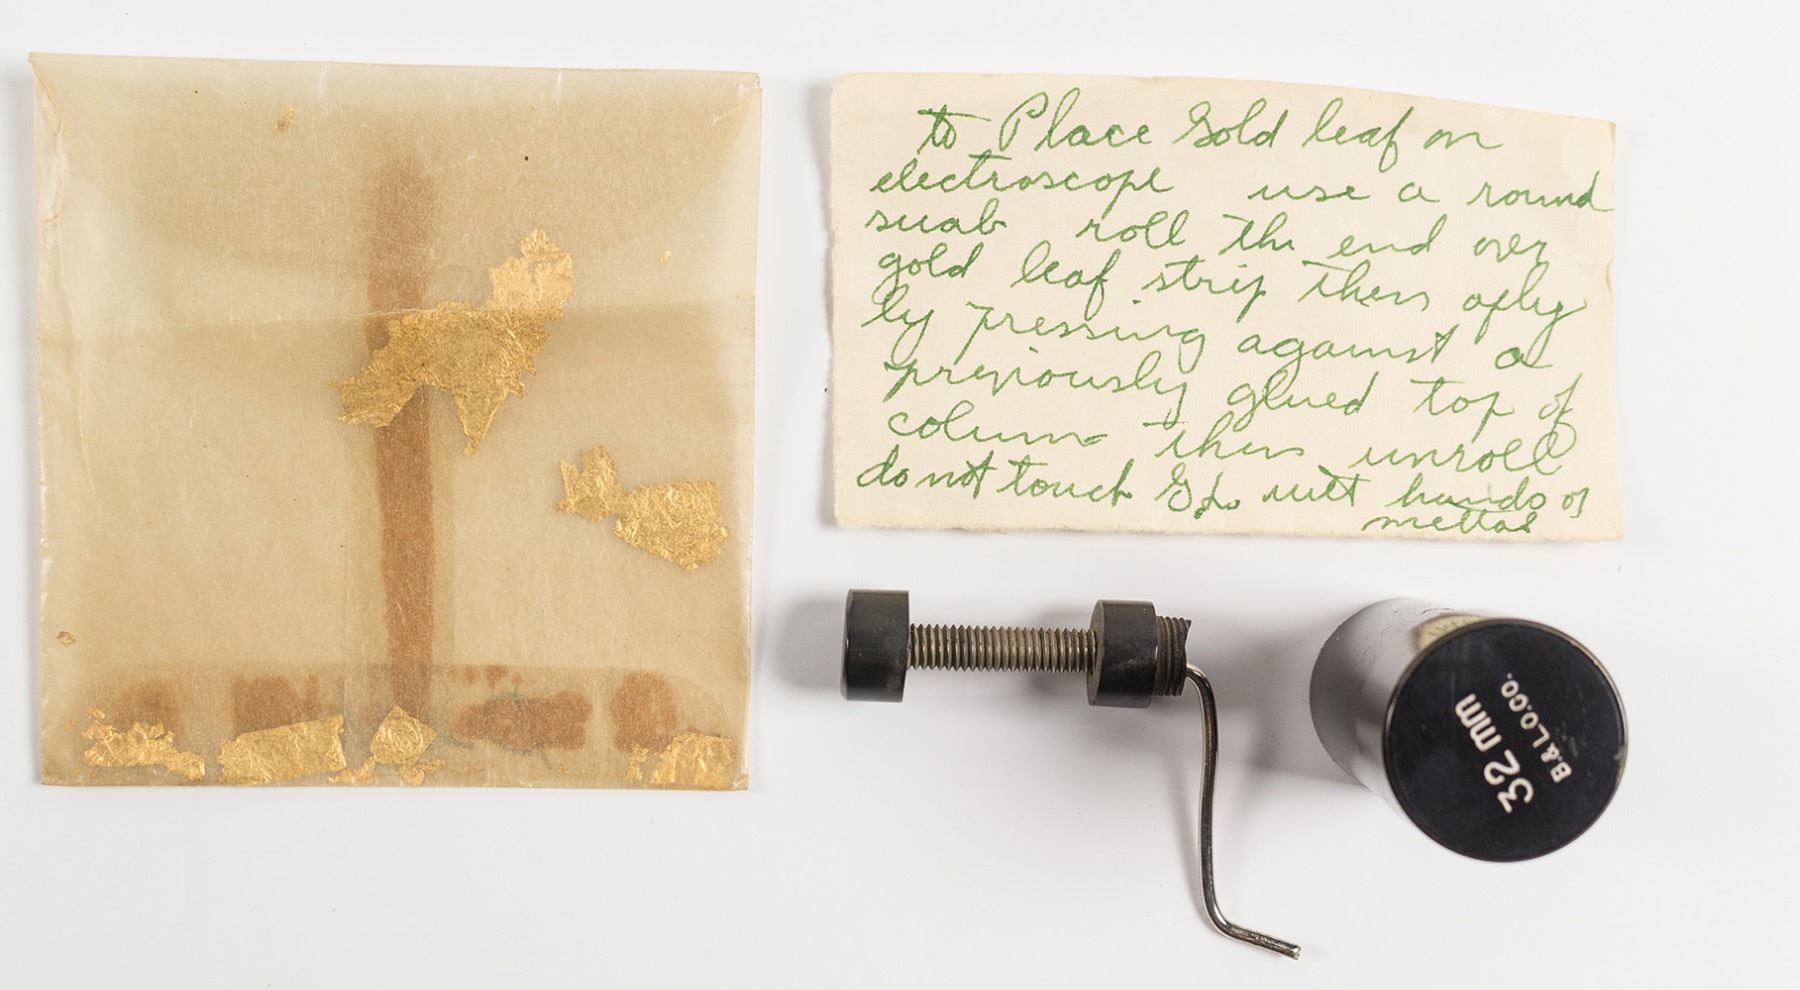 to Place Gold leaf on
electroscope use a round
suab roll the end over
gold leaf strip then aply
by pressing against a
previously glued top of
column then unroll
do not touch G.L. witt hands or
mettal
32 mm
B.&L.O.CO.